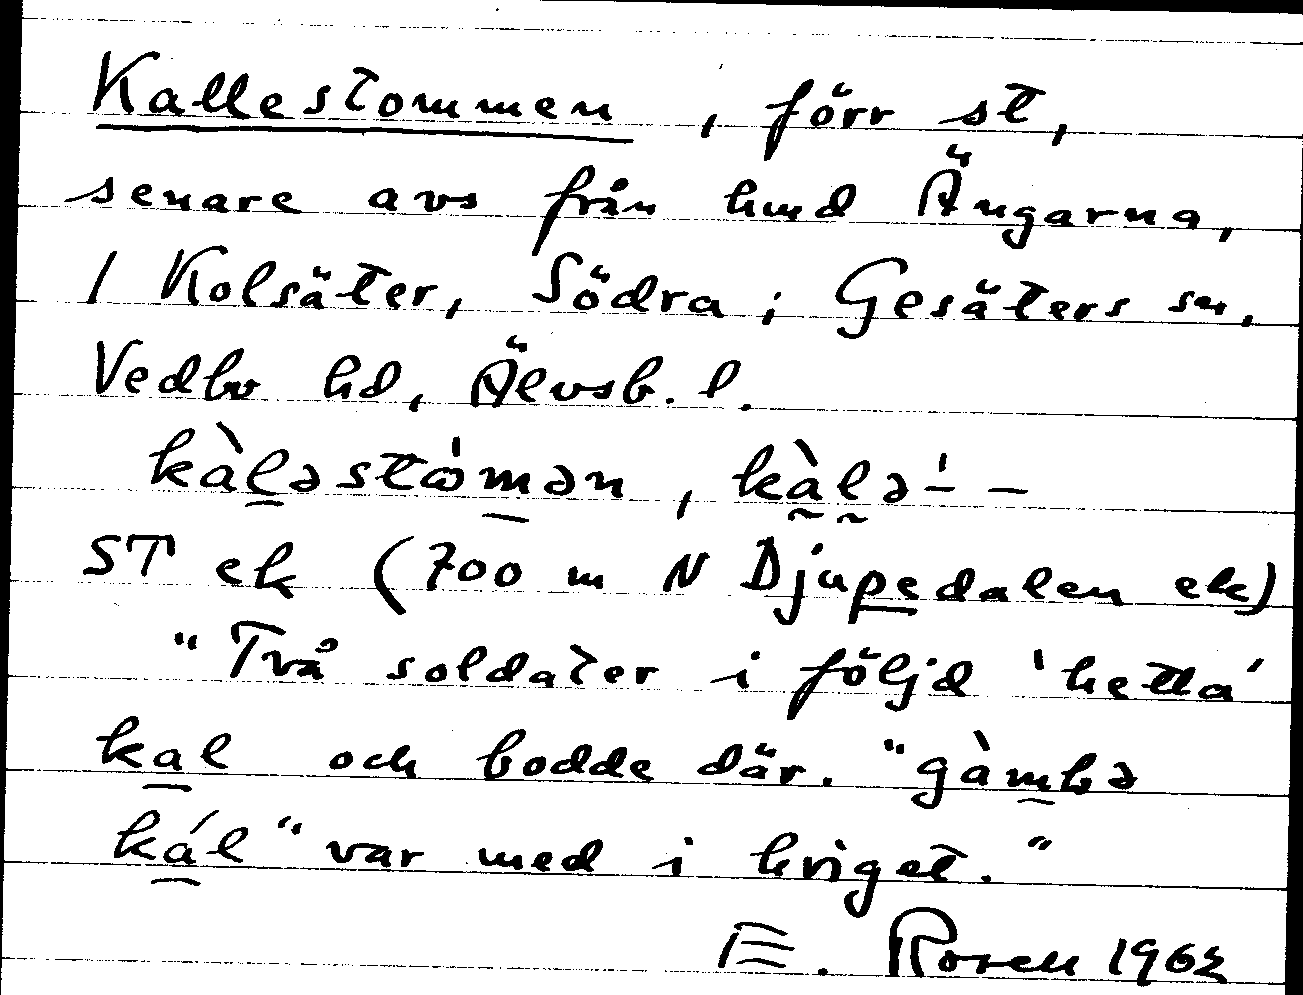 Kallestommen, förr st,
senare avs från hmd Ängarna,
1 Kolsäter, Södra; Gesäters sn,
Vedbo hd, Älvsb. l.
kàl̠əstɷ̀m̠ən, kà̰l̰ə-́ -
ST ek (700 m N Djupedalen ek)
"Två soldater i följd 'hetta'
ka̠l och bodde där. "gàm̠bə
ká̠l" var med i kriget."
E. Rosell 1962